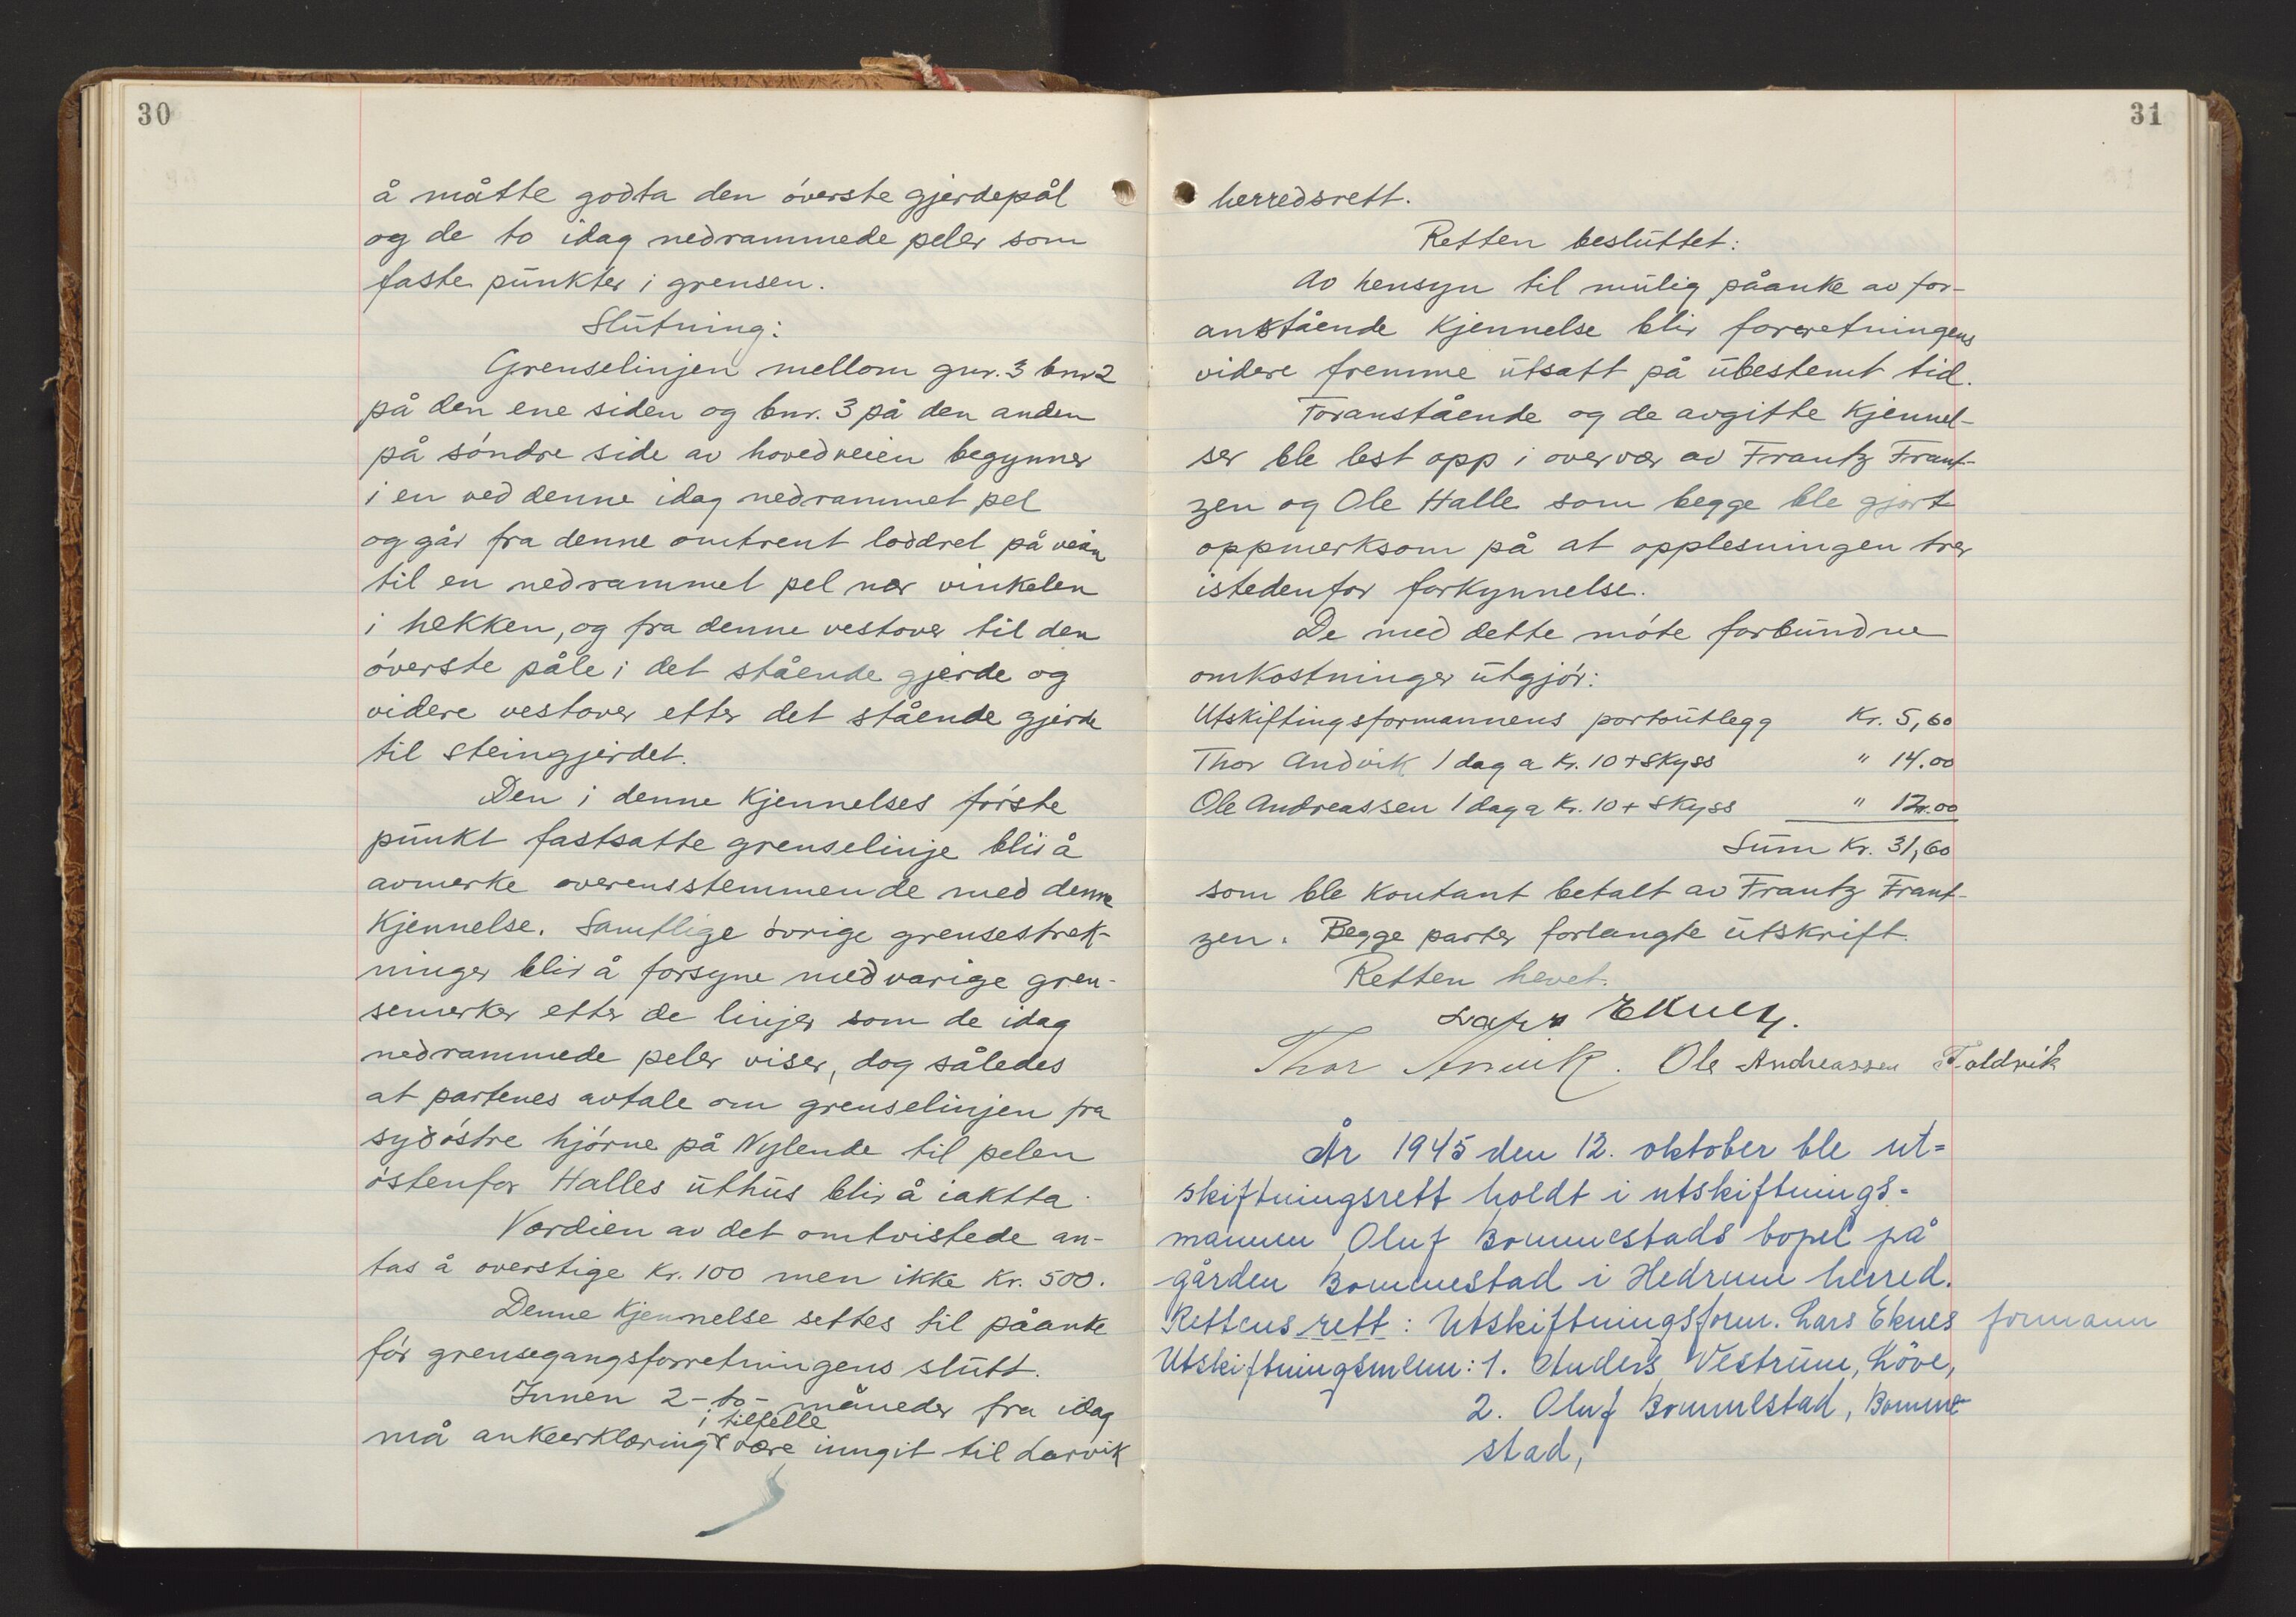 30
å måtte godta den överste gjerdepål
og de to idag nedrammede peler som
faste punkter i grensen.
Slutning:
Grenselinjen mellom gnr. 3 bnr 2
på den ene siden og bnr. 3 på den anden
på söndre side av hovedveien begynner
i en ved denne idag nedrammet pel
og går fra denne omtrent loddret på veien
til en nedrammet pel nær vinkelen
i hekken, og fra denne vestover til den
överste påle i det stående gjerde og
videre vestover etter det stående gjerde
til steingjerdet.
Den i denne kjennelses förste
punkt fastsatte grenselinje blir å
avmerke overensstemmende med denne
kjennelse. Samtlige övrige grensestrek-
ninger blir å forsyne med varige gren-
semerker etter de linjer som de idag
nedrammede peler viser, dog således
at partenes avtale om grenselinjen fra
sydöstre hjörne på Nylende til pelen
östenfor Halles uthus blir å iaktta.
Verdien av det omtvistede an-
tas å overstige Kr. 100 men ikke Kr. 500.
Denne kjennelse settes til påanke
för grensegangsforretningens slutt.
Innen 2 - to - måneder fra idag
i tilfelle
må ankeerklæring være inngit til Larvik
31
herredsrett.
Retten besluttet:
Av hensyn til mulig påanke av for-
anstående kjennelse blir forretningens
videre fremme utsatt på ubestemt tid.
Foranstående og de avgitte kjennel-
ser ble lest opp i overvær av Frantz Frant-
zen og Ole Halle som begge ble gjort
oppmerksom på at opplesningen trer
istedenfor forkynnelse.
De med dette möte forbundne
omkostninger utgjör:
Utskiftingsformannens portoutlegg Kr. 5,60
Thor Andvik 1 dag a Kr. 10 + Skyss " 14.00
Ole Andreassen 1 dag a Kr. 10 + Skyss " 12.00
Sum Kr. 31,60
som ble kontant betalt av Frantz Frant-
zen. Begge parter forlangte utskrift.
Retten hevet.
Lars Eknes.
Thor Anvik. Ole Andreassen Foldvik
År 1945 den 12. oktober ble ut=
skiftningsrett holdt i utskiftnings=
mannen Oluf Bommestads bopel på
gården Bommestad i Hedrum herred.
Rettens rett: Utskiftningsform. Lars Eknes formann
Utskiftningsmenn: 1. Anders Vestrum, Löve,
2. Oluf Bommestad, Bomme-
stad,